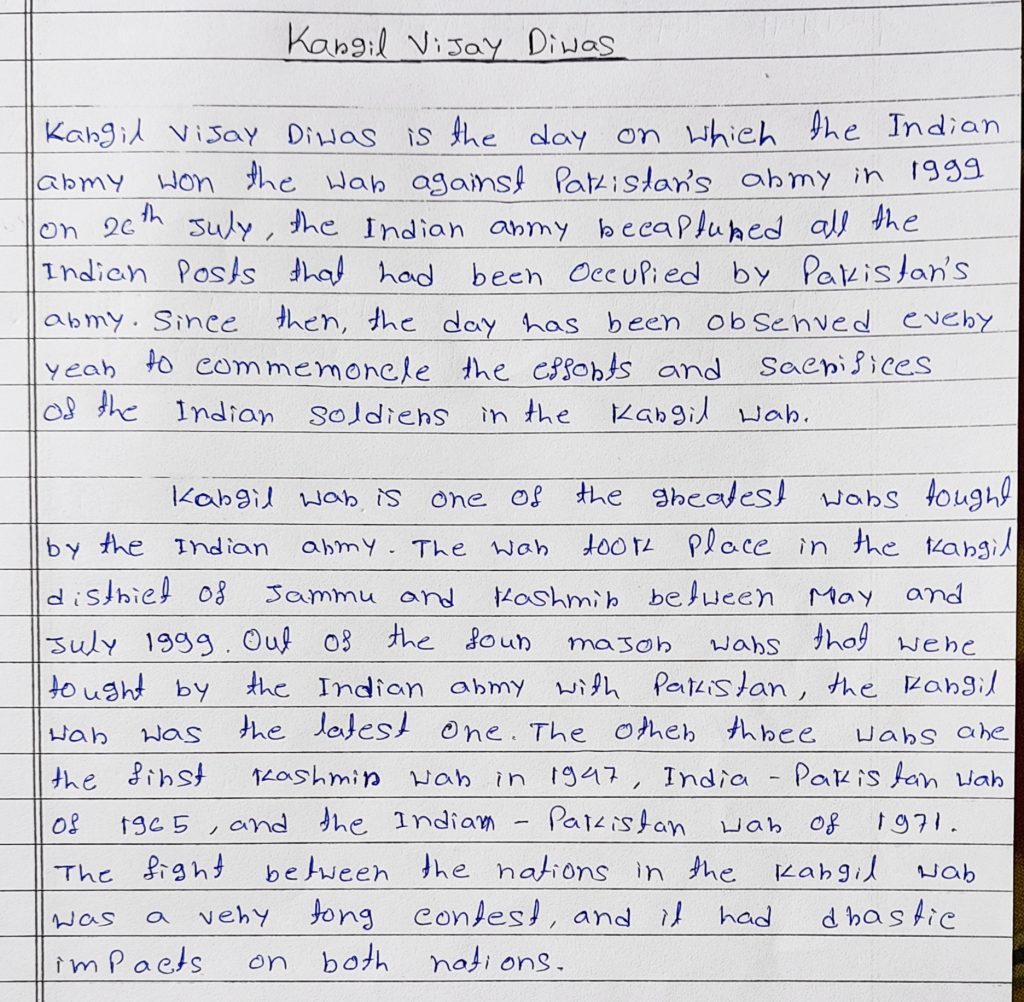 Kargil Vijay Diwas
Kargil Vijay Diwas is the day on which the Indian
army won the war against Pakistan's army in 1999
on 26th July, the Indian army recaptured all the
Indian Posts that had been occupied by Pakistan's
army. Since then, the day has been observed every
year to commemorcle the efforts and sacrifices
of the Indian soldiers in the Kargil war.
Kargil war is one of the greatest wars tought
by the Indian army. The war took place in the Kargil
district of Jammu and Kashmir between May and
July 1999. Out of the four major wars that were
tought by the Indian army with Pakistan, the Kargil
war was the latest one. The other three wars are
the first Kashmir war in 1947, India - Pakistan war
of 1965, and the Indian - Pakistan war of 1971.
The fight between the nations in the Kargil war
was a very tong contest, and it had drastic
impacts on both nations.